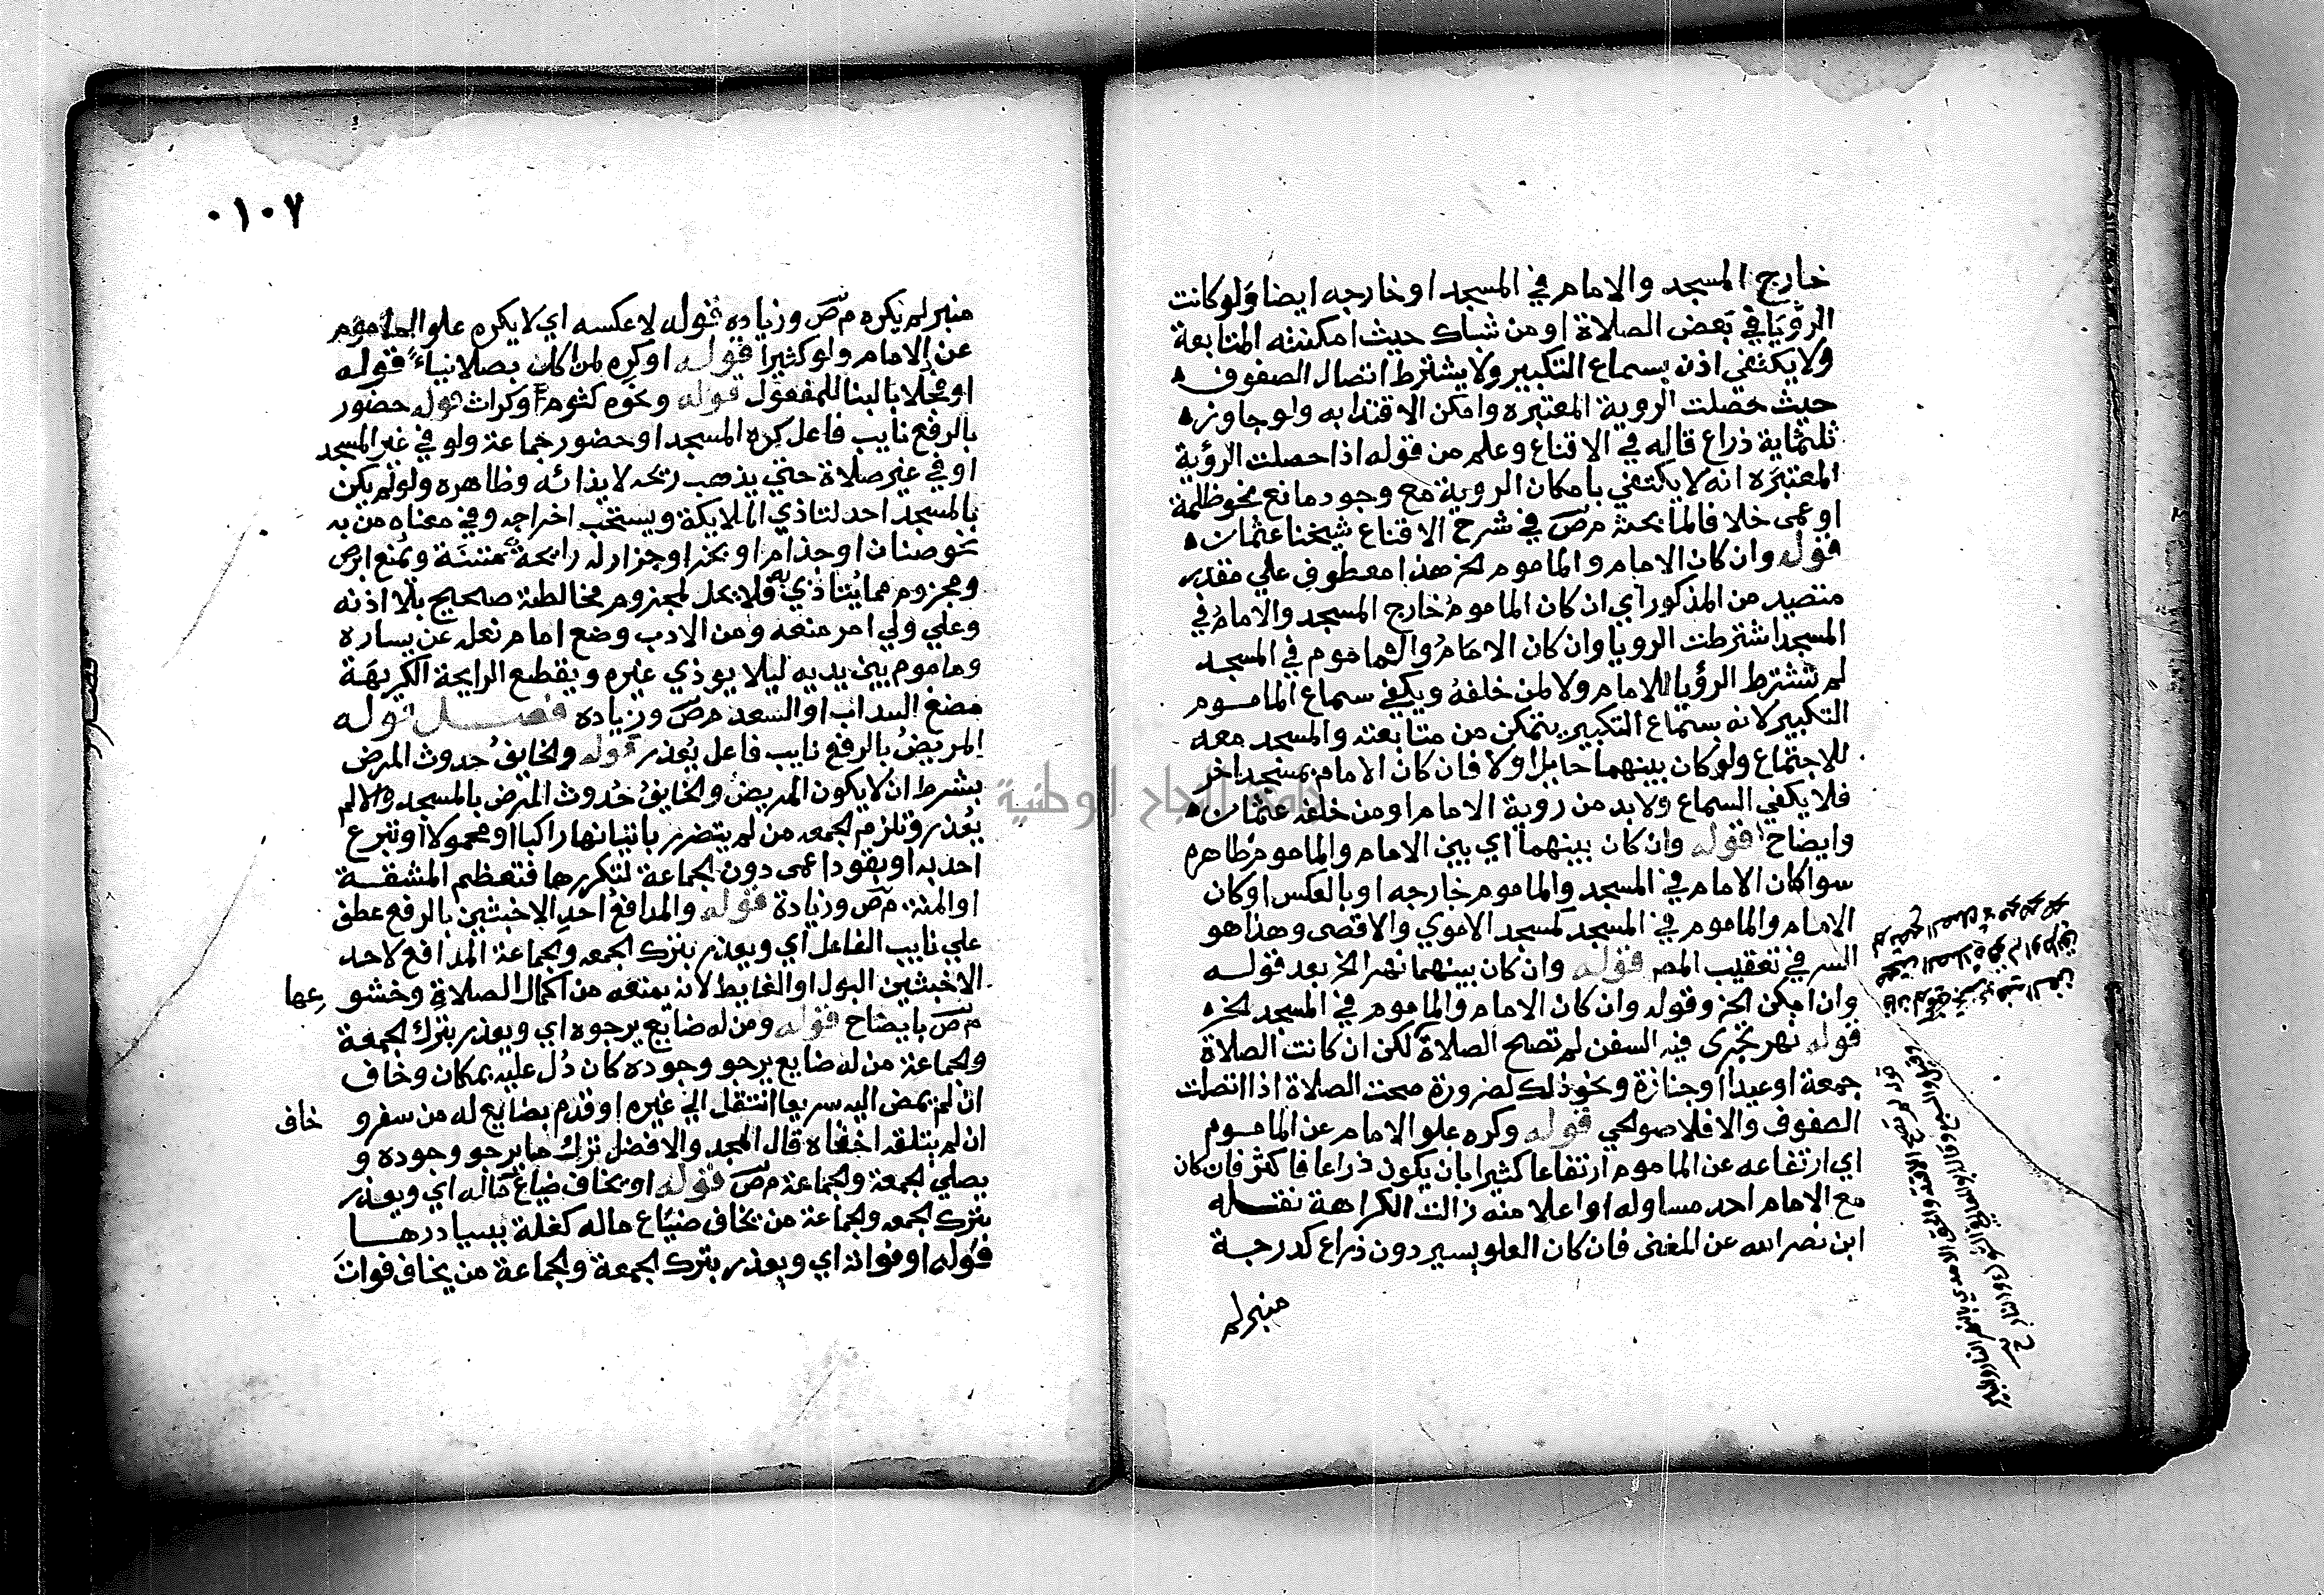 خارج المسجد والامام في المسجد او خارجه ايضا ولو كانت
الرؤيا في بعض الصلاة او من شباك حيث امكنته المتابعة
ولا يكتفي اذن بسماع التكبير ولا يشترط اتصال الصفوف
حيث حصلت الروية المعتبره وامكن الاقتدا به ولو جاوز
ثلثماية ذراع قاله في الاقناع وعلم من قوله اذا حصلت الرؤية
المعتبره انه لا يكتفي بامكان الروية مع وجود مانع نحو ظلمة
او عمى خلافا لما بحثه م ص في شرح الاقناع شيخنا عثمان
قوله وان كان الامام والماموم الخ هذا معطوف علي مقدر
متصيد من المذكور اي ان كان الماموم خارج المسجد والامام في
المسجد اشترطت الرويا وان كان الامام والماموم في المسجد
لم تشترط الرؤيا للامام ولا لمن خلفه ويكفي سماع الماموم
التكبير لانه بسماع التكبير يتمكن من متابعته والمسجد معد
للاجتماع ولو كان بينهما حايل اولا فان كان الامام بمسجد اخر
فلا يكفي السماع ولابد من روية الامام او من خلفه عثمان
وايضاح قوله وان كان بينهما اي بين الامام والماموم ظاهره
سوا كان الامام في المسجد والماموم خارجه او بالعكس او كان
الامام والماموم في المسجد كمسجد الاموي والاقصى وهذا هو
السر في تعقيب المصر قوله وان كان بينهما نهر الخ بعد قوله
وان امكن الخ وقوله وان كان الامام والماموم في المسجد الخ
قوله نهر تجرى فيه السفن لم تصح الصلاة لكن ان كانت الصلاة
جمعة او عيدا او جنازة ونحو ذلك لضرورة صحت الصلاة اذا اتصلت
الصفوف والا فلا صوالحي قوله وكره علو الامام عن الماموم
اي ارتفاعه عن الماموم ارتفاعا كثيرا بان يكون ذراعا فاكثر فان كان
مع الامام احد مساو له او اعلا منه زالت الكراهة نقله
ابن نصر الله عن المغنى فان كان العلو يسير دون ذراع كدرجة
منبر لم
٠١٠٧
منبر لم يكره م ص وزياده قوله لا عكسه اي لا يكره علو الماموم
عن الامام ولو كثيرا قوله او كره لمن اكل بصلا نياء قوله
او فجلا بالبنا للمفعول قوله ونحوه كثوم وكراث قوله حضور
بالرفع نايب فاعل كره المسجد او حضور جماعة ولو في غير المسجد
او في غير صلاة حتي يذهب ريحه لايذائه وظاهره ولو لم يكن
بالمسجد احد لتاذي الملايكة ويستحب اخراجه وفي معناه من به
نحو صنان او جذام او بخر او جزار له رايحة منتنة ويمنع ابرص
ومجزوم مما يتاذي به فلا يحل لمجزوم مخالطة صحيح بلا اذنه
وعلي ولي امر منعه ومن الادب وضع امام نعله عن يساره
وماموم بين يديه ليلا يوذي غيره ويقطع الرايحة الكريهة
مضغ السداب او السعد م ص وزياده فصل قوله
المريض بالرفع نايب فاعل يعذر قوله والخايف حدوث المرض
بشرط ان لا يكون المريض والخايف حدوث المرض بالمسجد والا لم
يعذر وتلزم الجمعه من لم يتضرر باتيانها راكبا او محمولا او تبرع
احد به او بقود اعمى دون الجماعة لتكررها فتعظم المشقة
او المنة م ص وزيادة قوله والمدافع احد الاخبثين بالرفع عطف
علي نايب الفاعل اي ويعذر بترك الجمعه والجماعة المدافع لاحد
الاخبثين البول او الغايط لانه يمنعه من اكمال الصلاة وخشو
عها
م ص بايضاح قوله ومن له ضايع يرجوه اي ويعذر بترك الجمعة
والجماعة من له ضايع يرجو وجوده كان دل عليه بمكان وخاف
ان لم يمض اليه سريعا انتقل الي غيره او قدم بضايع له من سفر و
خاف
ان لم يتلقه اخفاه قال المجد والافضل ترك ما يرجو وجوده و
يصلي الجمعة والجماعة م ص قوله او يخاف ضياع ماله اي ويعذر
بترك الجمعه والجماعة من يخاف ضياع ماله كغلة ببيادرها
قوله او فواته اي ويعذر بترك الجمعة والجماعة من يخاف فوات